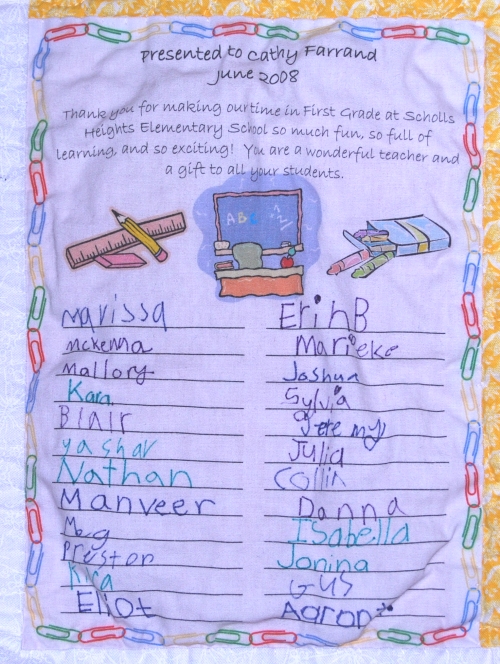 Presented to Cathy Farrand
June 2008
Thank you for making our time in First Grade at Scholls
Heights Elementary School so much fun, so full of
learning, and so exciting! You are a wonderful teacher and
a gift to all your students.
ABC
Marissa
Mckenna
Mallory
Kara
Blair
yashar
Nathan
Manveer
Meg
Preston
Kira
Eliot
Erin B
Marieke
Joshua
Sylvia
Jeremy
Julia
Collin
Danna
ISabella
Jonina
GUS
Aaron